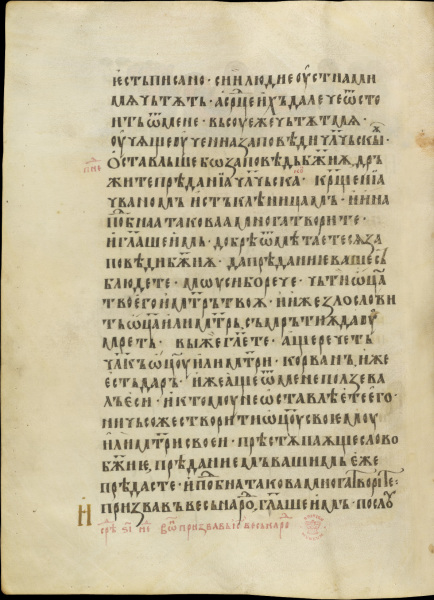 естъ писано · сии людие оустнами
мѧ чьтѫтъ · а срⷣцеи ихъ далече ѿсто
итъ ѿ мене · въсоуе же чьтѫт мѧ ·
оучѧще оученіа заповѣди чл҃чьскыѫ
Оставльше бо заповѣдь бж҃иѫ, дръ
жите прѣданіа чл҃чьска · кр҃щеніа
чваномъ и стъклѣницам · и ина
побⷣна такова многа творите ·
и гл҃аше имъ · добрѣ ѿмѣтаетесѧ за
повѣди бж҃иѫ · да прѣдание ваше съ
блюдете · мѡуси бо рече · чьти ѡц҃а
твоего и мт҃рь твоѫ · и иже злослови
тъ ѡц҃а или мт҃рь, съмрътиѫ да оу
мретъ · вы же гл҃ете · аще речетъ
чл҃къ ѡц҃оу или мт҃ри · корван, иже
естъ даръ · иже аще ѿ мене ползева
лъ еси · и к томоу не ѡставлѣете его
ничьсоже сътворити ѡц҃оу своемоу
или мт҃ри своеи · прѣстѫпаѫще слово
бж҃ие, прѣданиемъ вашимъ еже
прѣдасте · и побⷣна такова многа творите ·
И призвавъ весь нарѡⷣ, гл҃аше имъ · послоу
срѣⷣ ѕ҃і · въѡ призвавь і҃с весь нарѡⷣ